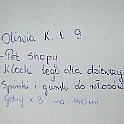 Oliwia K. l. 9
- Pet shopy
- Klocki lego dla dziewczyn
- Spinki i gumki do włosów
- getry x 3 na 140 cm